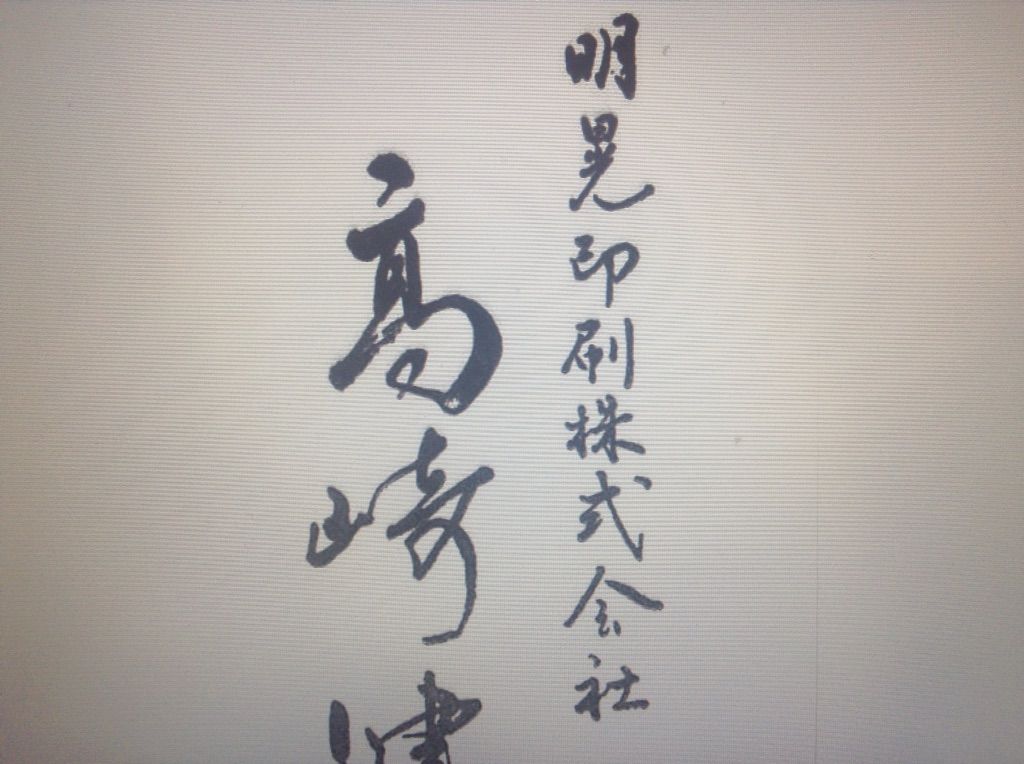 明晃印刷株式会社
高崎健